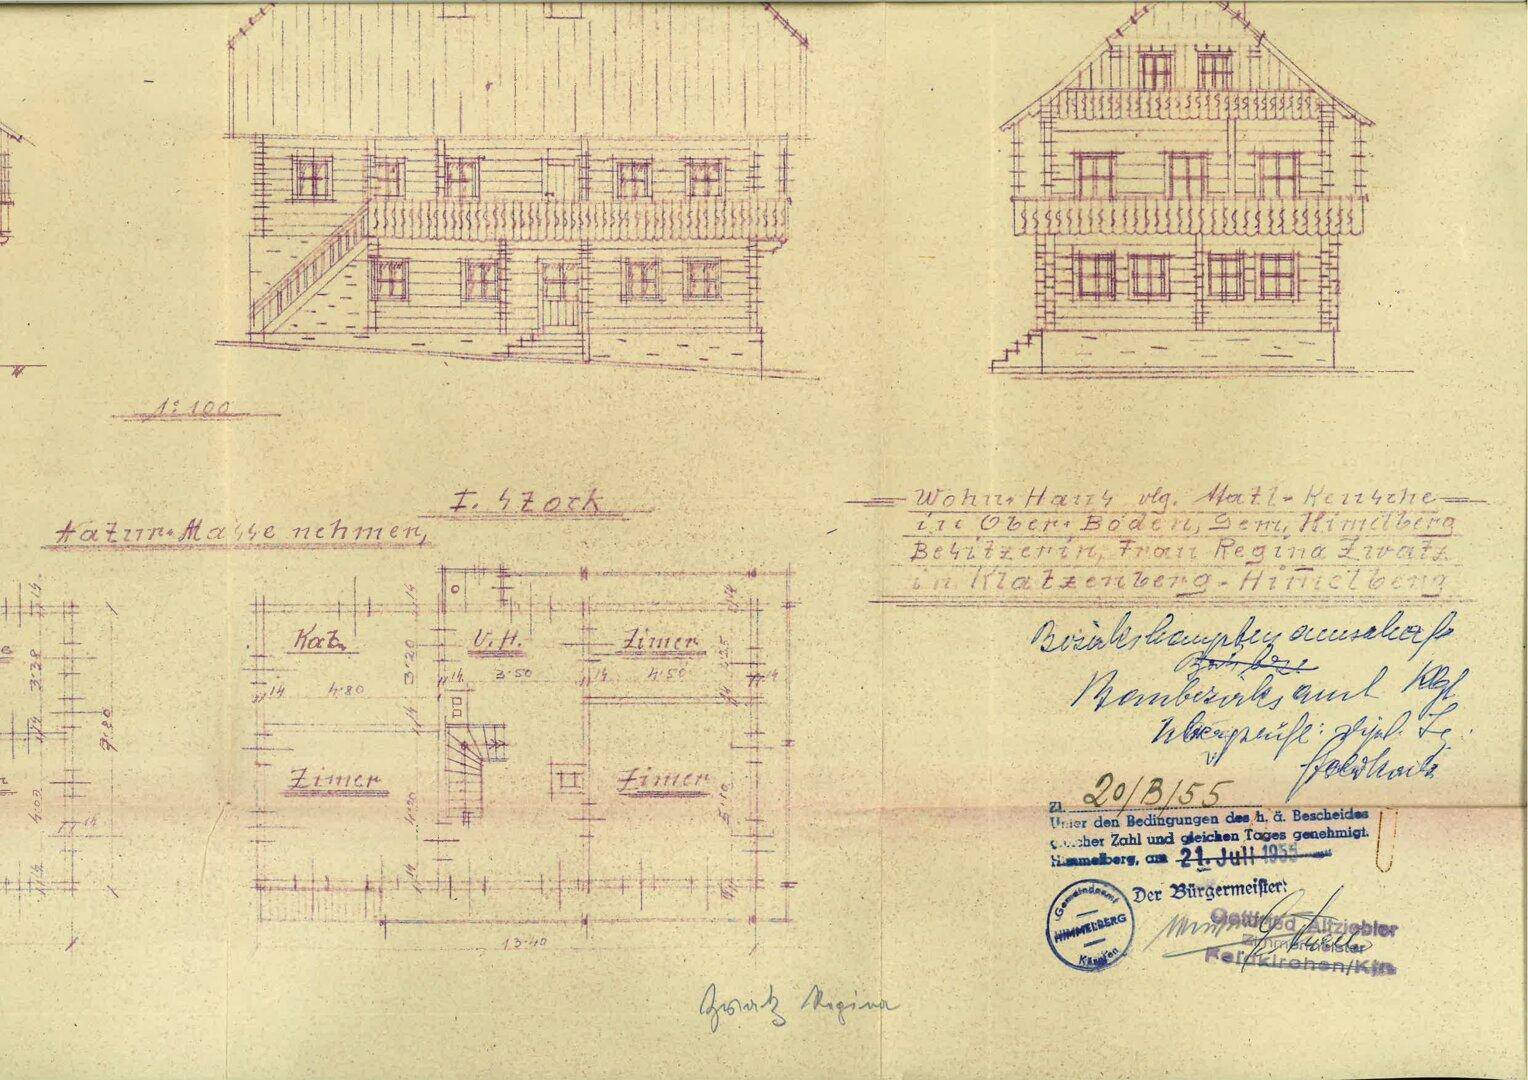 1:100
I. Stock
Natur-Masse nehmen,
Wohn-Haus vlg. Matl-Keusche
in Ober-Boden, Gem, Himelberg
Besitzerin, Frau Regina Zwatz
in Klatzenberg-Himelberg
Kab.
V.H.
Zimer
14
4·80
14
3·50
14
4·50
14
14
3·20
14
14
14
3·20
14
9·80
4·00
14
Zimer
Zimer
4·20
5·10
14
13·40
Bezirkshauptmannschaft
Baubezirksamt Klgf
Überprüft: Dipl. Ig.
Zl. 20/B/55
Unter den Bedingungen des h. ä. Bescheides
gleicher Zahl und gleichen Tages genehmigt.
Himmelberg, am 21. Juli 1955
Der Bürgermeister:
Gemeindeamt
HIMMELBERG
Kärnten
Gottfried Altziebler
Zimmermeister
Feldkirchen/Ktn
Zwatz Regina